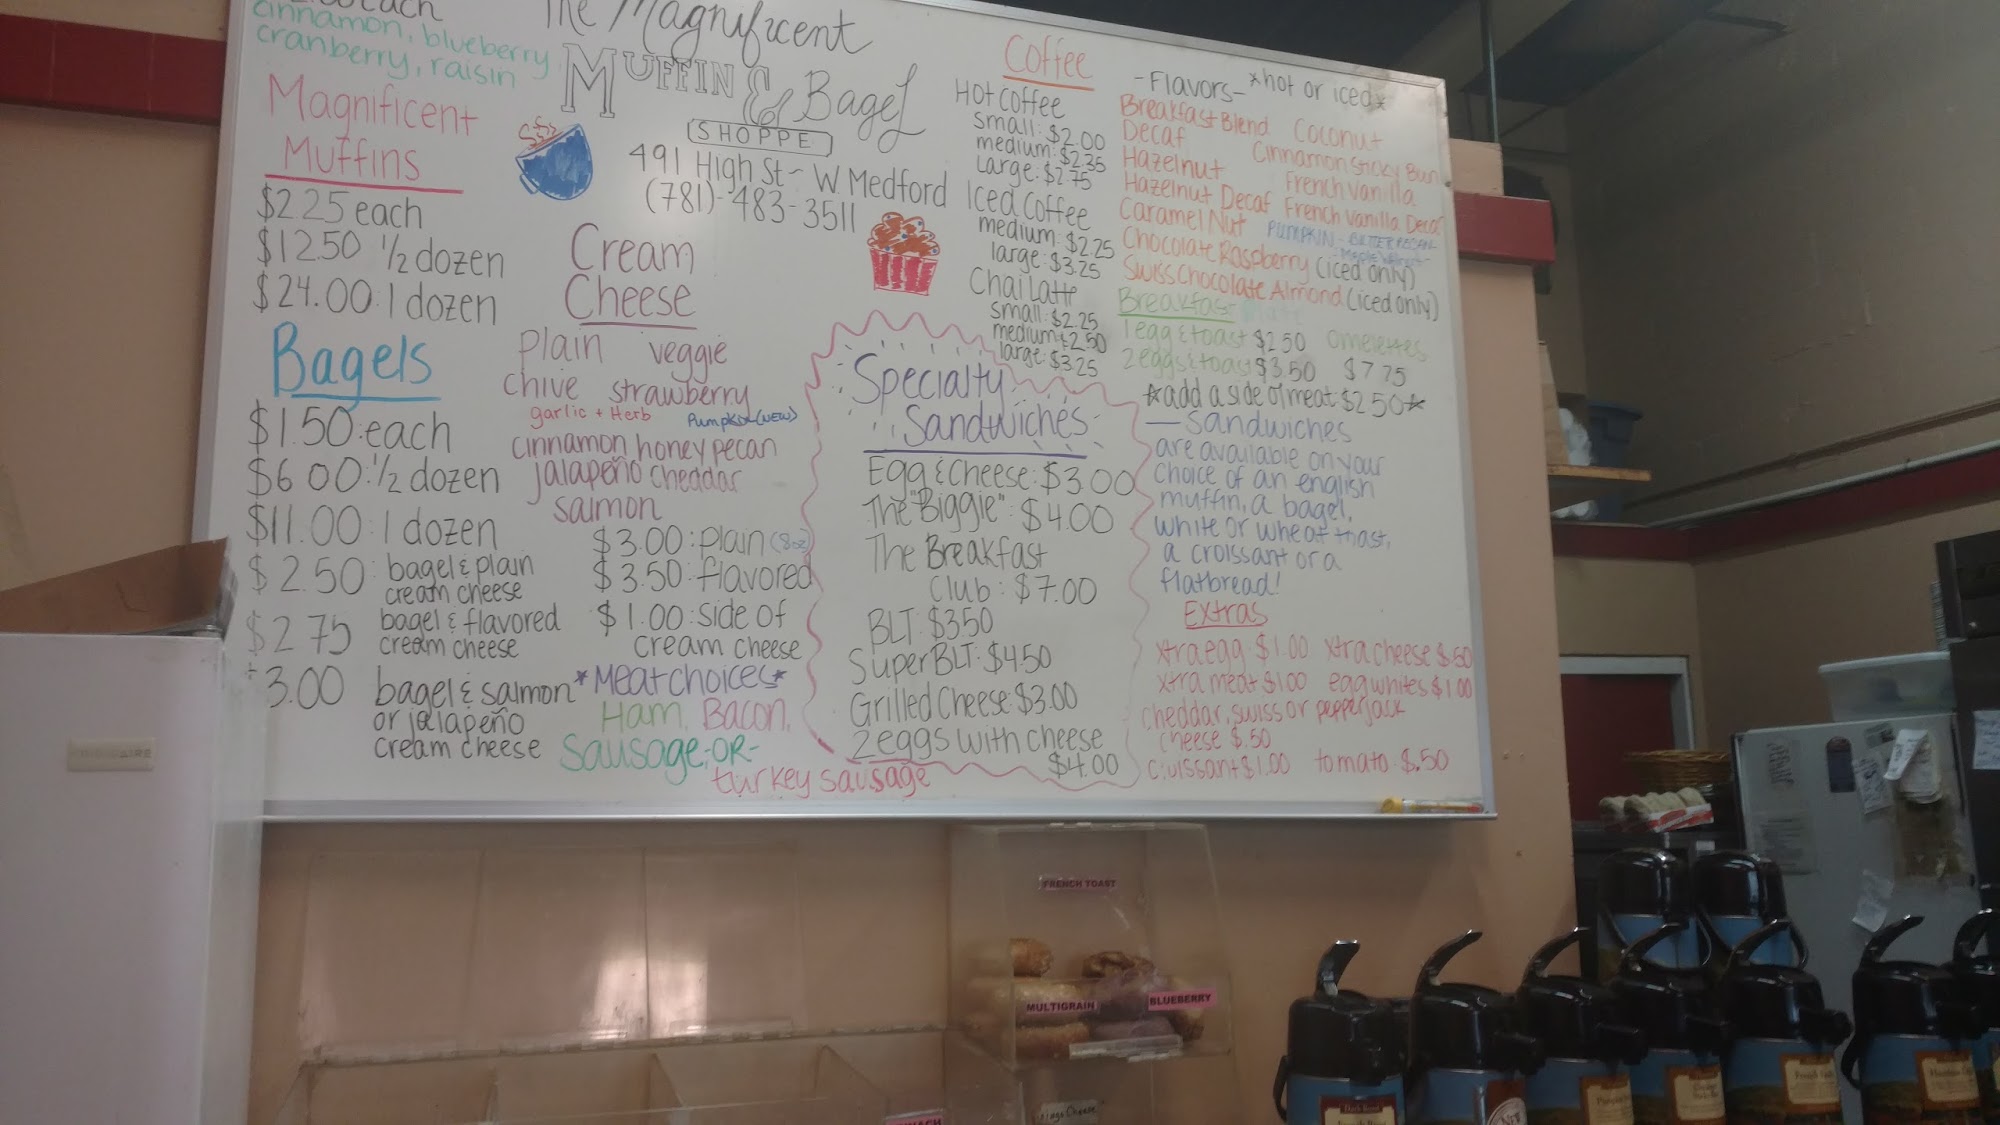 each
cinnamon, blueberry
cranberry, raisin
Magnificent
Muffins
$2.25 each
$12.50 1/2 dozen
$24.00:1 dozen
Bagels
$1.50:each
$6.00:1/2 dozen
$11.00:1 dozen
$2.50: bagel & plain
cream cheese
$2.75 bagel & flavored
cream cheese
3.00 bagel & salmon
or jalapeño
cream cheese
The Magnificent
Muffin & Bagel
SHOPPE
491 High St ~ W. Medford
(781)-483-3511
Cream
Cheese
plain veggie
chive strawberry
garlic + Herb Pumpkin (NEW)
cinnamon honey pecan
jalapeño cheddar
salmon
$3.00:plain (8oz)
$3.50:flavored
$1.00:side of
cream cheese
*Meat choices*
Ham, Bacon,
Sausage,-OR-
turkey sausage
Specialty
Sandwiches
Egg & Cheese: $3.00
The "Biggie": $4.00
The Breakfast
Club: $7.00
BLT: $3.50
Super BLT: $4.50
Grilled Cheese: $3.00
2 eggs with cheese
$4.00
Coffee
Hot Coffee
small: $2.00
medium: $2.35
Large: $2.75
Iced Coffee
medium: $2.25
large: $3.25
Chai Latte
small: $2.25
medium: $2.50
large: $3.25
-Flavors- *hot or iced*
Breakfast Blend Coconut
Decaf Cinnamon Sticky Bun
Hazelnut French Vanilla
Hazelnut Decaf French Vanilla Decaf
Caramel Nut PUMPKIN - BUTTER PECAN -
- Maple Walnut -
Chocolate Raspberry (iced only)
Swiss Chocolate Almond (iced only)
Breakfast Plate
1 egg & toast $2.50 omelettes
2 eggs & toast $3.50 $7.75
*add a side of meat $2.50*
— Sandwiches
are available on your
choice of an english
muffin, a bagel,
white or wheat toast,
a croissant or a
flatbread!
Extras
xtra egg $1.00 xtra cheese $.50
xtra meat $1.00 egg whites $1.00
cheddar, swiss or pepperjack
cheese $.50
croissant $1.00 tomato $.50
FRIGIDAIRE
FRENCH TOAST
MULTIGRAIN
BLUEBERRY
NEW